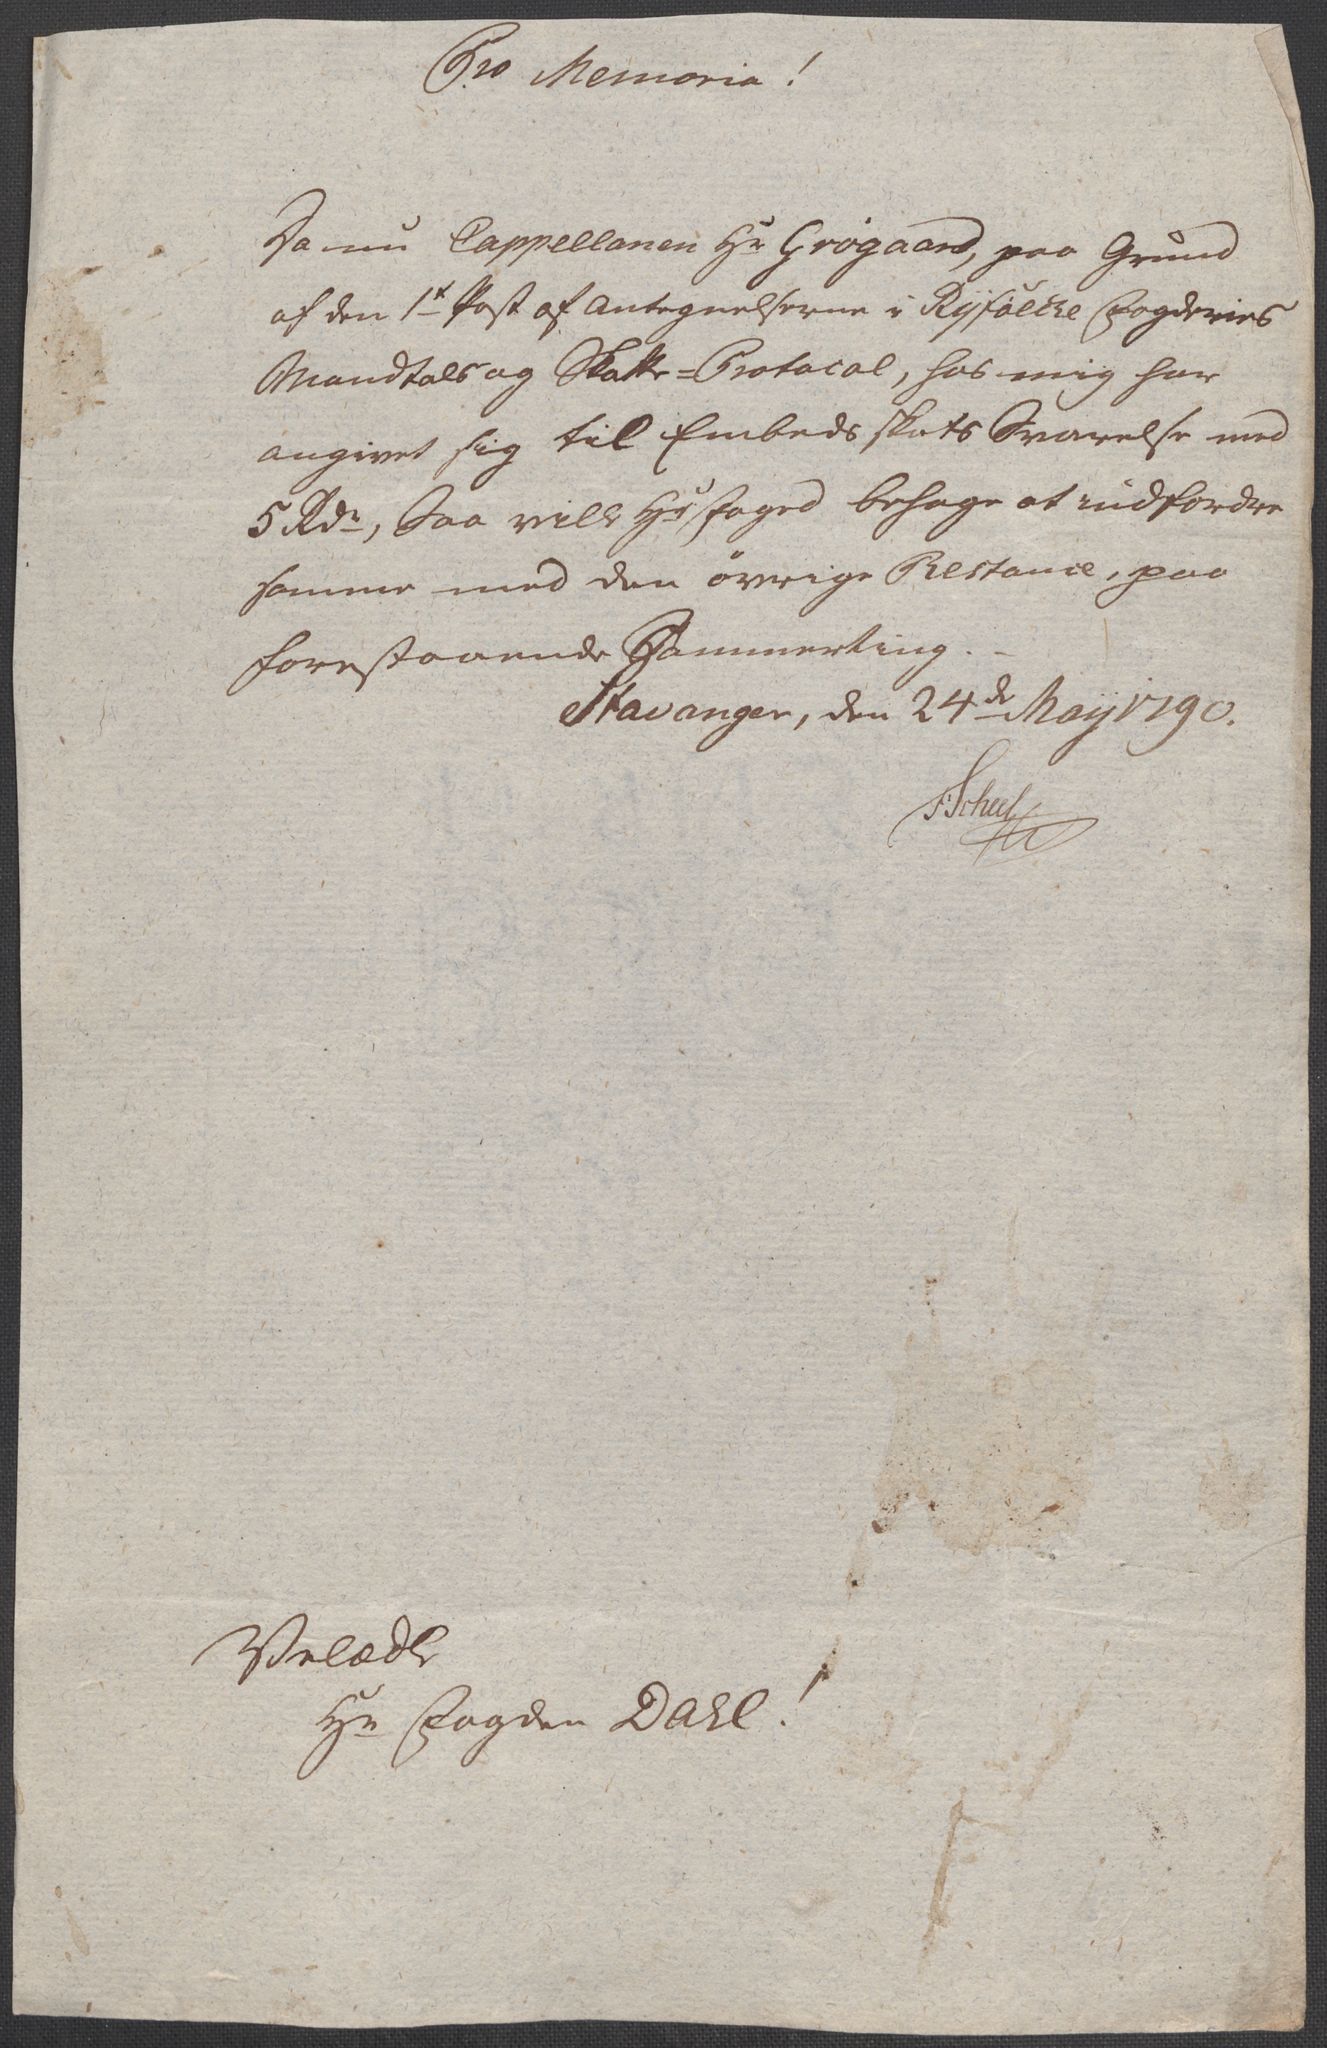 Pro Memoria!
Da nu Cappellanen Hr Grögaard, paa Grund
af den 1te Post af Antegnelserne i Ryfölke Fogderies
Mandtals og Skatte=Protocol, hos mig har
angivet sig til Embeds skats Svarelse med
5 Rdr, Saa ville Hr Foged behage at indfordre
samme med den övrige Restance, paa
forestaaende Sommerting.
Stavanger, den 24de Maÿ 1790.
F: Scheel
Velædle
Hr Fogden Dahl!